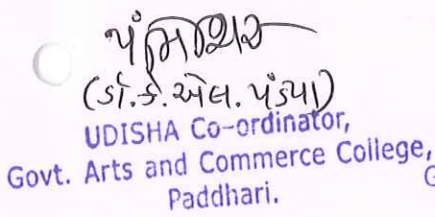 (ડૉ.કે.એલ. પંડ્યા)
UDISHA Co-ordinator,
Govt. Arts and Commerce College,
Paddhari.